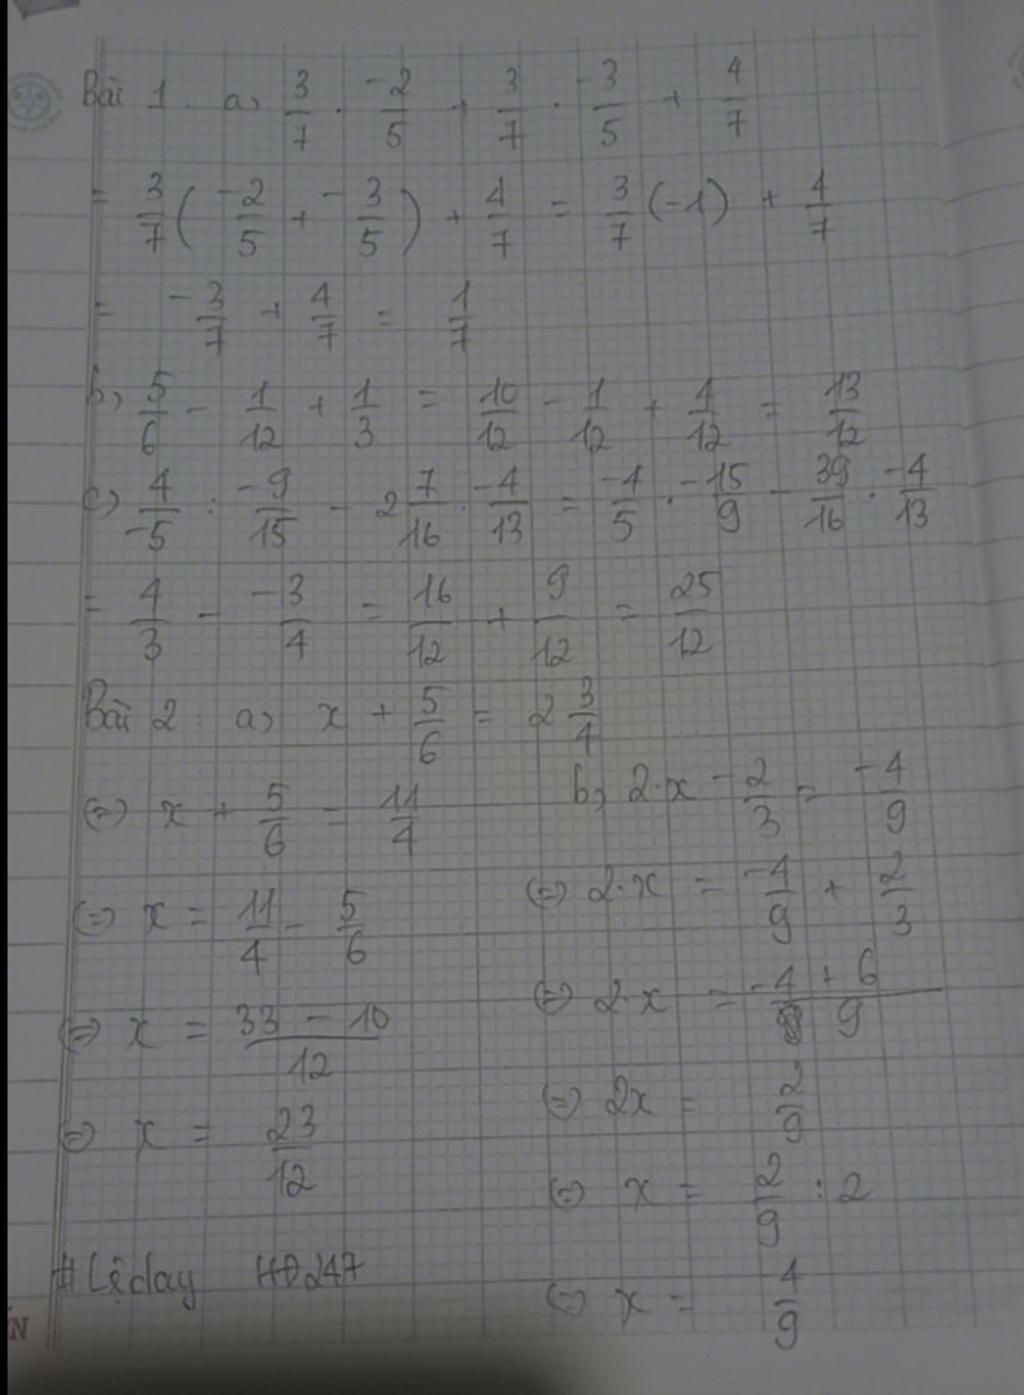 Bài 1: a, 3/7 . -2/5 + 3/7 . -3/5 + 4/7
= 3/7 ( -2/5 + -3/5 ) + 4/7 = 3/7 (-1) + 4/7
= -3/7 + 4/7 = 1/7
b, 5/6 - 1/12 + 1/3 = 10/12 - 1/12 + 4/12 = 13/12
c, 4/-5 : -9/15 - 2 7/16 . -4/13 = -4/5 . -15/9 - 39/16 . -4/13
= 4/3 - -3/4 = 16/12 + 9/12 = 25/12
Bài 2: a, x + 5/6 = 2 3/4
(=) x + 5/6 = 11/4
(=) x = 11/4 - 5/6
(=) x = 33 - 10/12
(=) x = 23/12
b, 2.x - 2/3 = -4/9
(=) 2.x = -4/9 + 2/3
(=) 2.x = -4 + 6/9
(=) 2x = 2/9
(=) x = 2/9 : 2
(=) x = 1/9
#Lệday HĐ247
ẾN